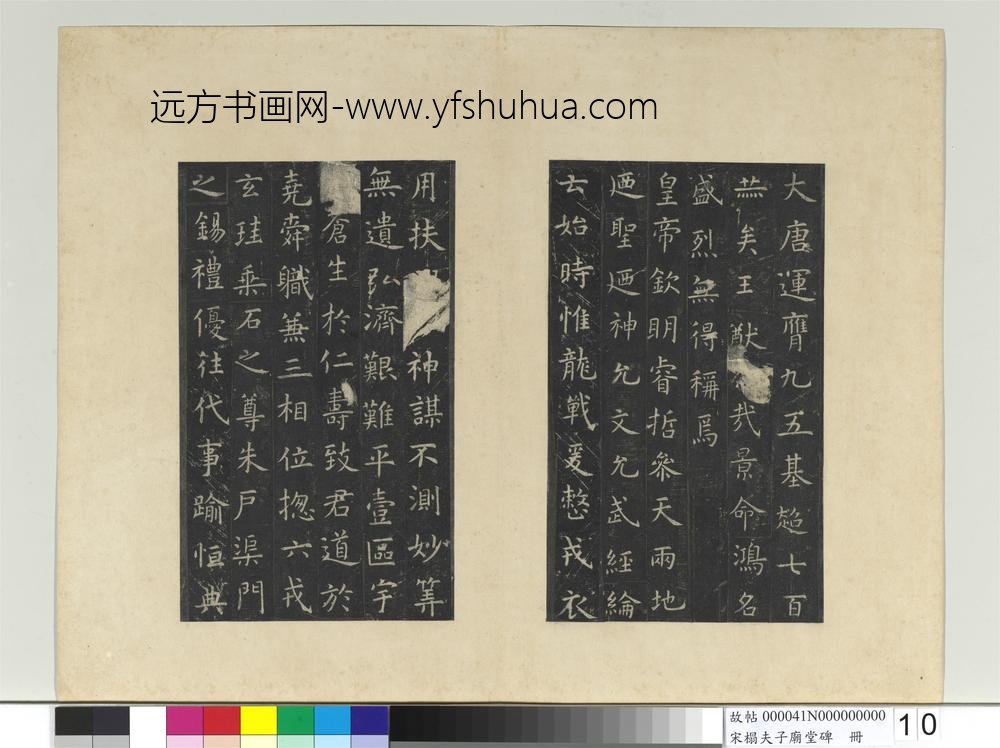 远方书画网-www.yfshuhua.com
大唐運膺九五基超七百
赫矣王猷哉景命鴻名
盛烈無得稱焉
皇帝欽明睿哲參天兩地
迺聖迺神允文允武經綸
云始時惟龍戰爰整戎衣
用扶神謀不測妙筭
無遺弘濟艱難平壹區宇
倉生於仁壽致君道於
堯舜職兼三相位揔六戎
玄珪乘石之尊朱戶渠門
之錫禮優往代事踰恒典
故帖 000041N000000000
宋搨夫子廟堂碑 冊
10